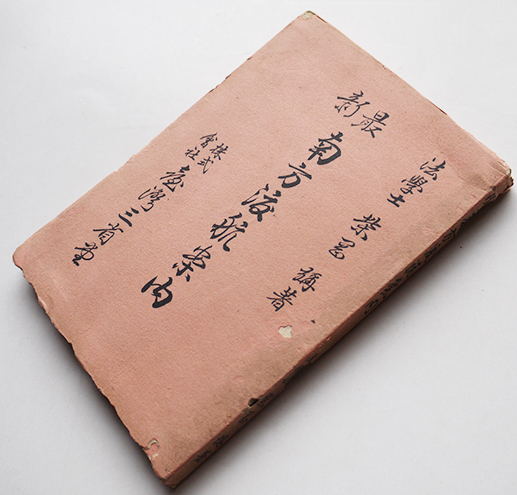 法學士 柴山 㷛著
最新 南方渡航案内
株式會社 臺灣三省堂